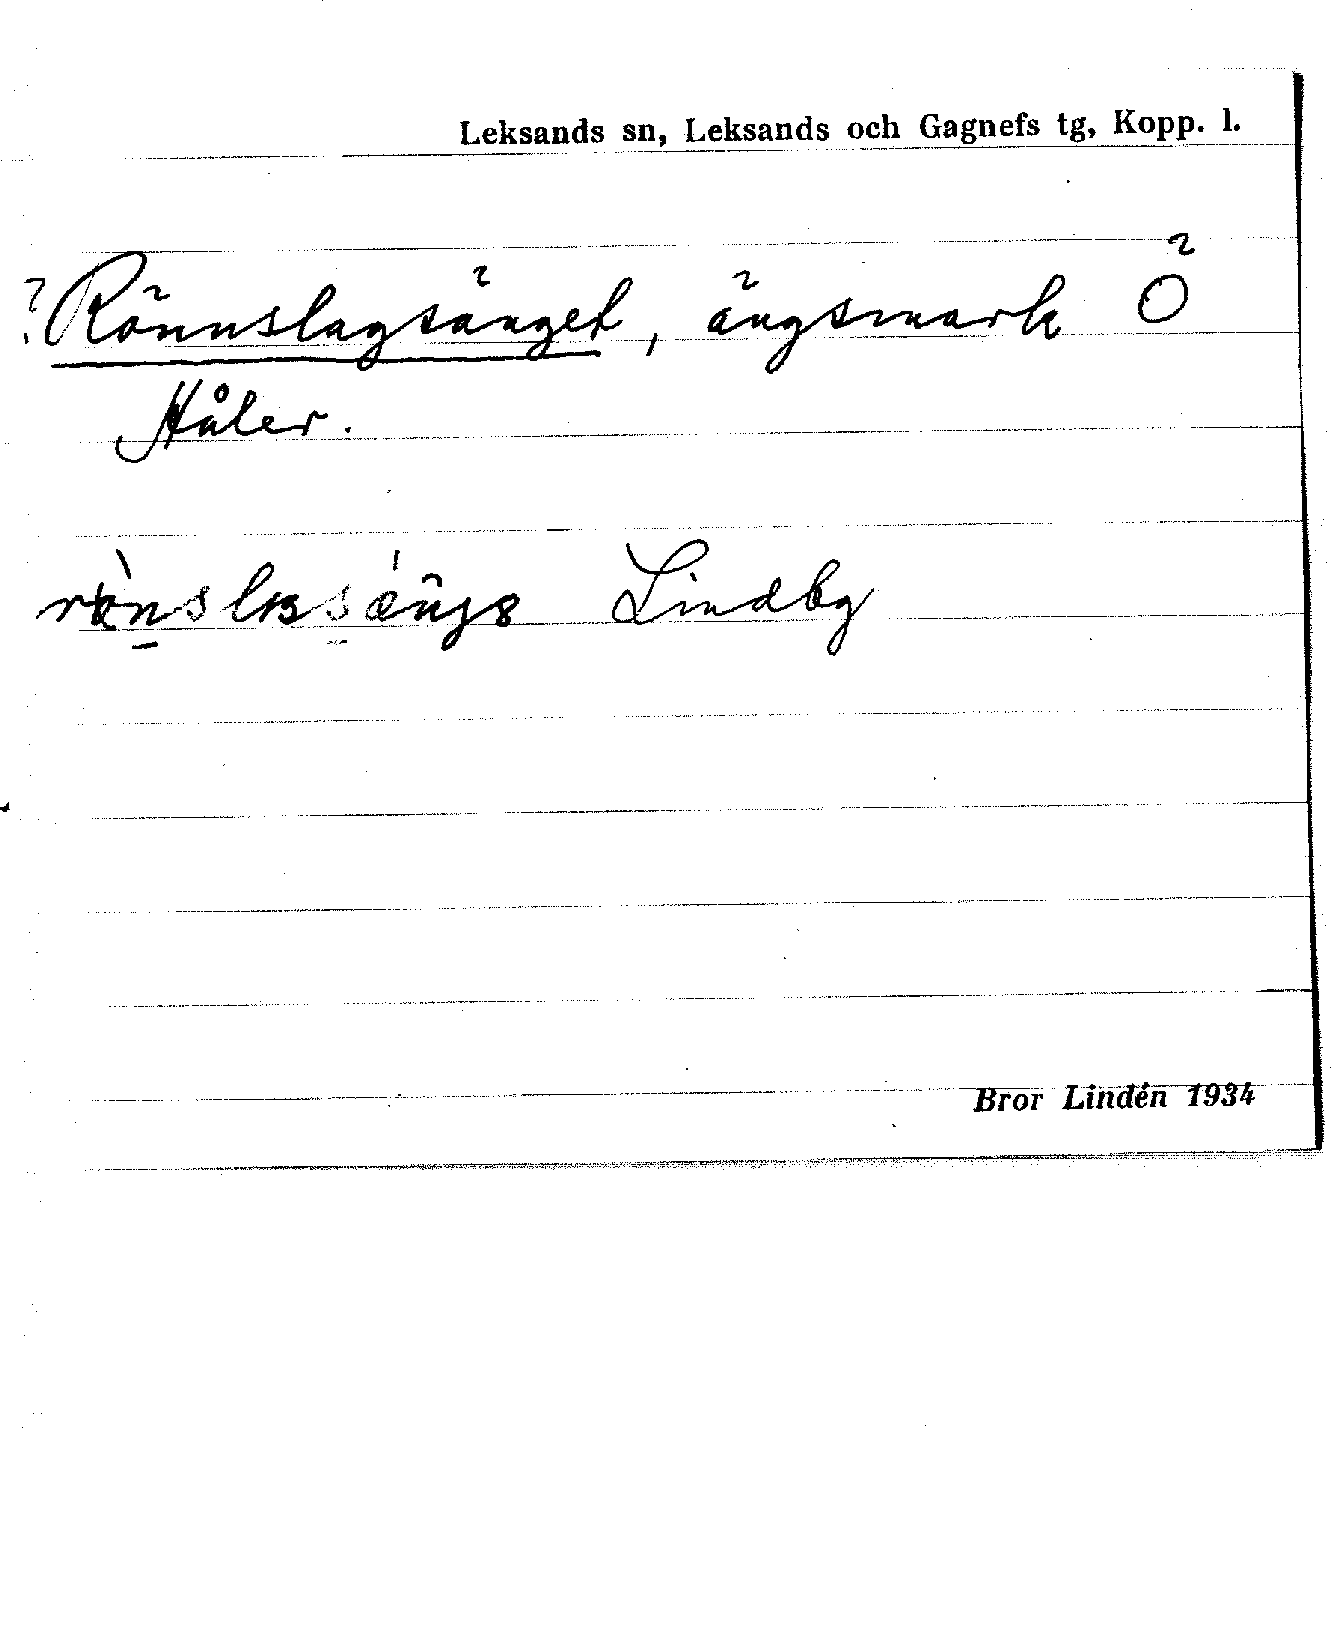 Leksands sn, Leksands och Gagnefs tg, Kopp. l.
? Rönnslagsänget, ängsmark Ö
Håler.
Lindby
Bror Lindén 1934